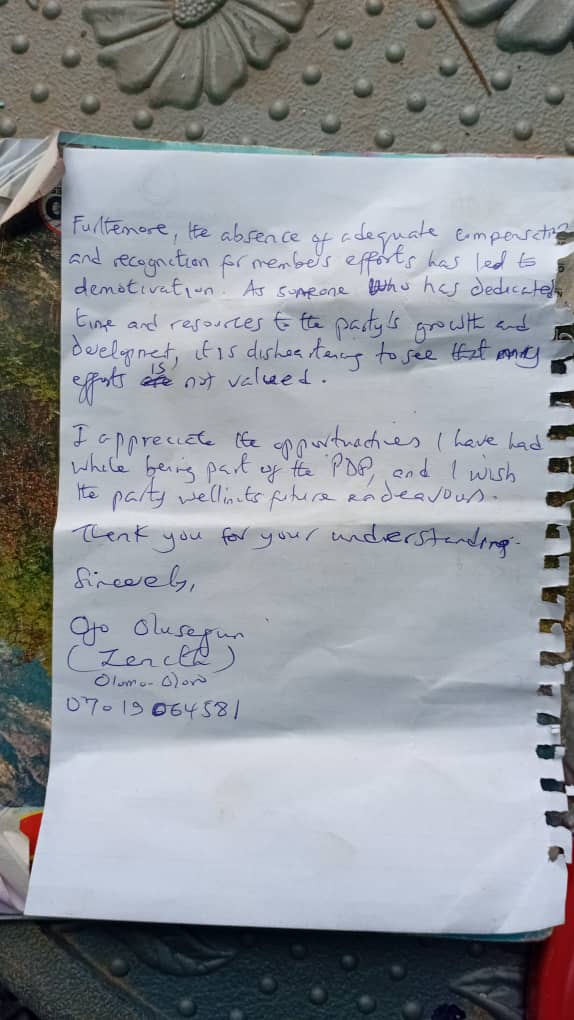 Furtemore, the absence of adequate compensation
and recognition for members efforts has led to
demotivation. As someone who has dedicated
time and resources to the party's growth and
development, it is disheartening to see that my
efforts is not valued.
I appreciate the opportunities I have had
while being part of the PDP, and I wish
the party well in its future endeavours.
Thank you for your understanding.
Sincerely,
Ojo Olusegun
(Zenith)
07019064581